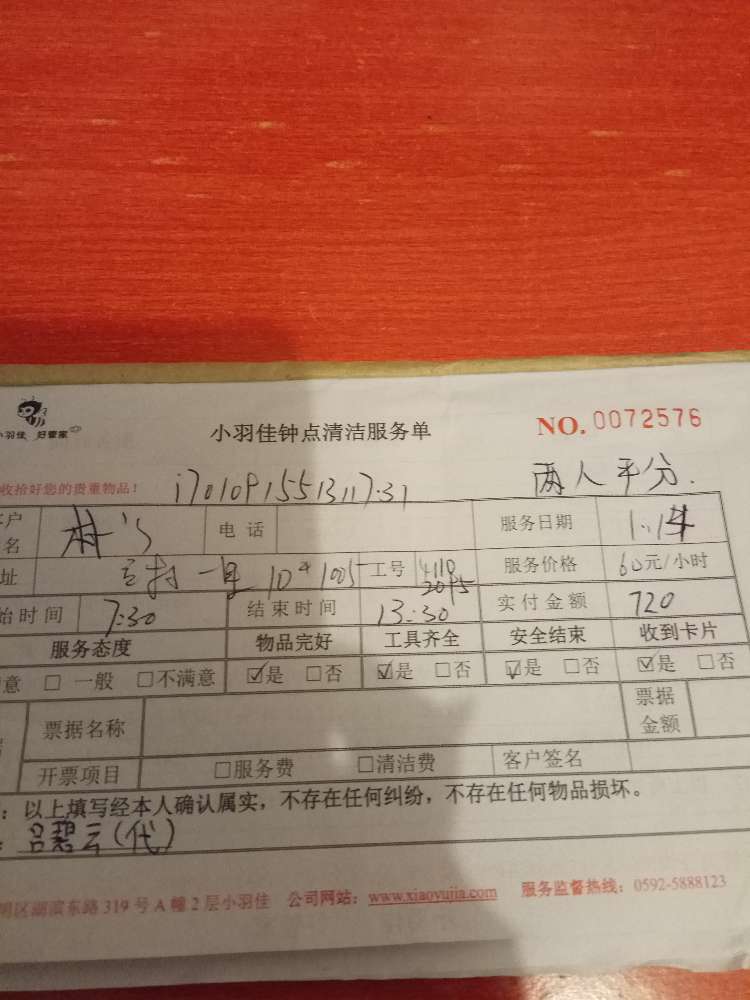 小羽佳 好管家
小羽佳钟点清洁服务单 NO. 0072576
收拾好您的贵重物品! 两人平分.
户 电话 服务日期
名
址 10# 1005 工号 4110 服务价格 60元/小时
2095
始时间 7:30 结束时间 13:30 实付金额 720
服务态度 物品完好 工具齐全 安全结束 收到卡片
意 □ 一般 □不满意 ☑是 □否 ☑是 □否 ☑是 □否 ☑是 □否
票据名称 票据金额
开票项目 □服务费 □清洁费 客户签名
:以上填写经本人确认属实,不存在任何纠纷,不存在任何物品损坏。
: 吕碧云(代)
明区湖滨东路 319 号 A 幢 2 层小羽佳 公司网站:www.xiaoyujia.com 服务监督热线:0592-5888123